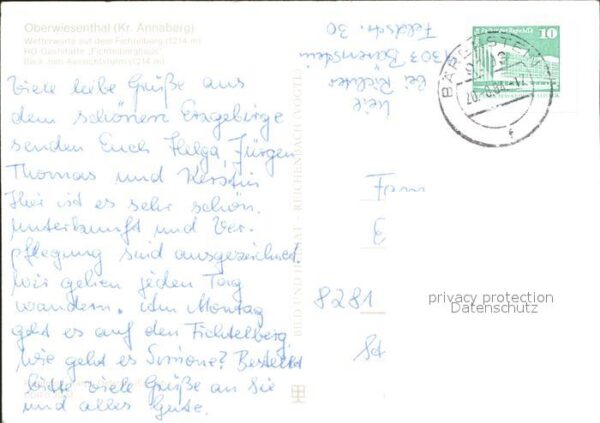 Oberwiesenthal (Kr. Annaberg)
Wetterwarte auf dem Fichtelberg (1214 m)
HO-Gaststätte „Fichtelberghaus"
Blick zum Aussichtsturm (1214 m)
Viele liebe Grüße aus
dem schönen Erzgebirge
senden Euch Helga, Jürgen
Thomas und Kerstin
Hier ist es sehr schön.
Unterkunft und Ver-
pflegung sind ausgezeichnet.
Wir gehen jeden Tag
wandern. Am Montag
geht es auf den Fichtelberg.
Wie geht es Simone? Bestellt
bitte viele Grüße an Sie
und alles Gute.
BILD UND HEIMAT REICHENBACH (VOGTL)
bei Richter
9303 Bärenstein
Feldstr. 30
BÄRENSTEIN
9303
10
Fam
3
8281
privacy protection
Datenschutz